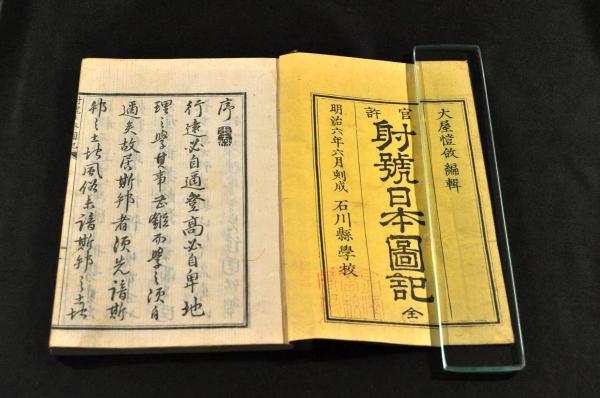 大屋愷敆 編輯
官許
射號日本圖記 全
明治六年六月刻成 石川縣學校
序
行遠必自邇登高必自卑地
理之學其事甚難而學之須自
邇矣故居斯邦者須先諳斯
邦之土地風俗未諳斯邦之土地